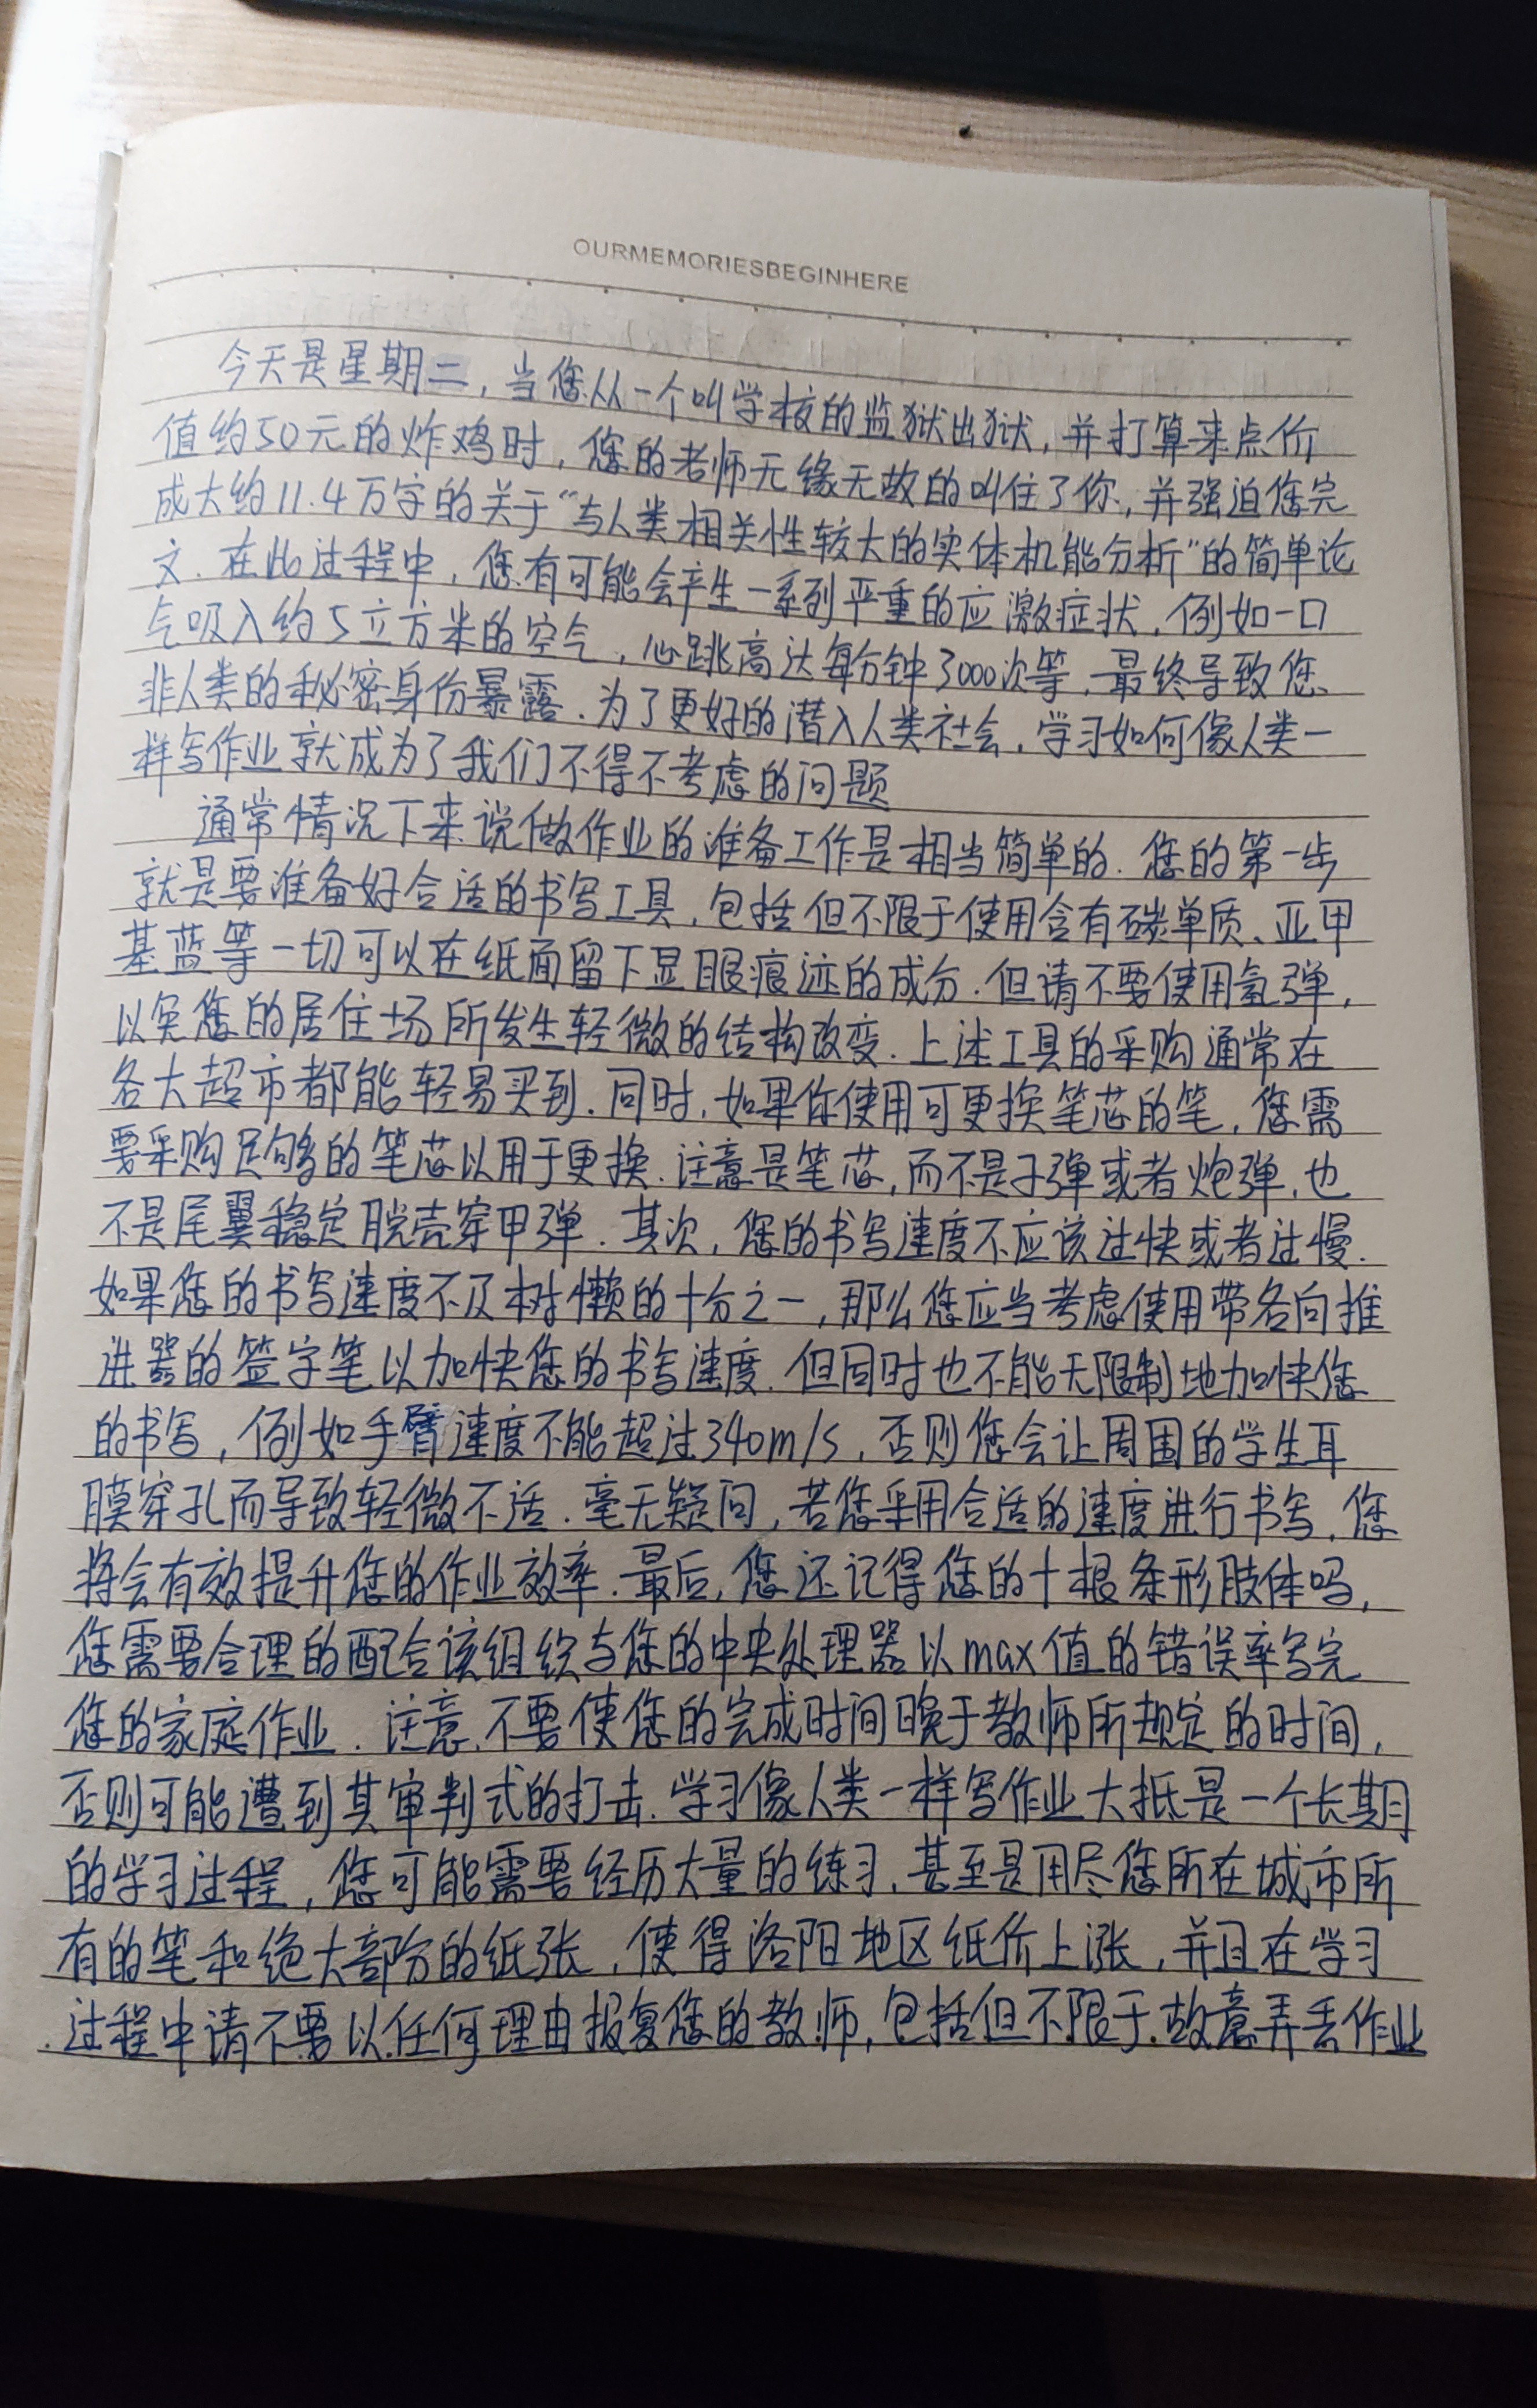 OURMEMORIESBEGINHERE
今天是星期二，当您从一个叫学校的监狱出狱，并打算来点价
值约50元的炸鸡时，您的老师无缘无故的叫住了你，并强迫您完
成大约11.4万字的关于“与人类相关性较大的实体机能分析”的简单论
文.在此过程中，您有可能会产生一系列严重的应激症状，例如一口
气吸入约5立方米的空气，心跳高达每分钟3000次等，最终导致您
非人类的秘密身份暴露.为了更好的潜入人类社会，学习如何像人类一
样写作业就成为了我们不得不考虑的问题
通常情况下来说做作业的准备工作是相当简单的.您的第一步
就是要准备好合适的书写工具，包括但不限于使用含有碳单质、亚甲
基蓝等一切可以在纸面留下显眼痕迹的成分.但请不要使用氢弹，
以免您的居住场所发生轻微的结构改变.上述工具的采购通常在
各大超市都能轻易买到.同时，如果你使用可更换笔芯的笔，您需
要采购足够的笔芯以用于更换.注意是笔芯，而不是子弹或者炮弹，也
不是尾翼稳定脱壳穿甲弹.其次，您的书写速度不应该过快或者过慢.
如果您的书写速度不及树懒的十分之一，那么您应当考虑使用带各向推
进器的签字笔以加快您的书写速度.但同时也不能无限制地加快您
的书写，例如手臂速度不能超过340m/s，否则您会让周围的学生耳
膜穿孔而导致轻微不适.毫无疑问，若您采用合适的速度进行书写，您
将会有效提升您的作业效率.最后，您还记得您的十根条形肢体吗，
您需要合理的配合该组织与您的中央处理器以max值的错误率写完
您的家庭作业.注意，不要使您的完成时间晚于教师所规定的时间，
否则可能遭到其审判式的打击.学习像人类一样写作业大抵是一个长期
的学习过程，您可能需要经历大量的练习，甚至是用尽您所在城市所
有的笔和绝大部分的纸张，使得洛阳地区纸价上涨，并且在学习
过程中请不要以任何理由报复您的教师，包括但不限于.故意弄丢作业